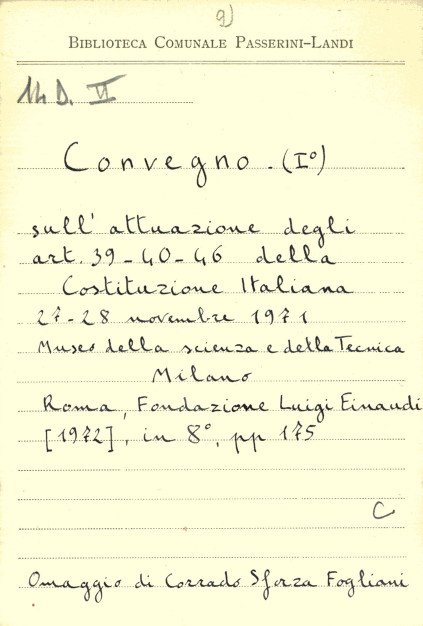 9)
BIBLIOTECA COMUNALE PASSERINI-LANDI
14 D. VI
Convegno. (I°)
sull'attuazione degli
art. 39-40-46 della
Costituzione Italiana
27-28 novembre 1971
Museo della scienza e della Tecnica
Milano
Roma, Fondazione Luigi Einaudi
[1972], in 8°, pp 175
C
Omaggio di Corrado Sforza Fogliani